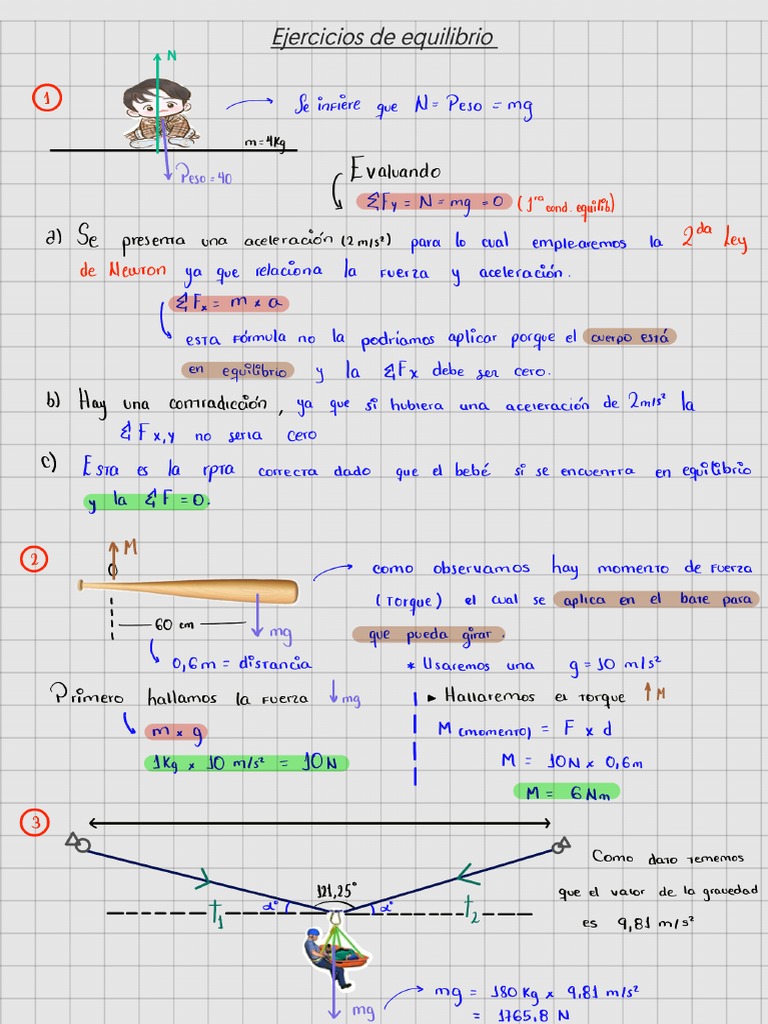 Ejercicios de equilibrio
1
N
Se infiere que N = Peso = mg
m = 4Kg
Peso = 40
Evaluando
ΣFy = N = mg = 0 (1ra cond. equilib)
a) Se presenta una aceleración (2 m/s²) para lo cual emplearemos la 2da Ley
de Newton ya que relaciona la fuerza y aceleración.
ΣFx = m x a
esta fórmula no la podríamos aplicar porque el cuerpo está
en equilibrio y la ΣFx debe ser cero.
b) Hay una contradicción, ya que si hubiera una aceleración de 2m/s² la
ΣF x,y no seria cero
c) Esta es la rpta correcta dado que el bebé si se encuentra en equilibrio
y la ΣF = 0.
2
M
como observamos hay momento de fuerza
(torque) el cual se aplica en el bate para
que pueda girar.
60 cm
mg
0,6m = distancia
* Usaremos una g = 10 m/s²
Primero hallamos la fuerza ↓mg
m x g
1Kg x 10 m/s² = 10N
▸ Hallaremos el torque ↑M
M (momento) = F x d
M = 10N x 0,6m
M = 6Nm
3
Como dato tenemos
que el valor de la gravedad
es 9,81 m/s²
121,25°
t1
α°
α°
t2
mg
mg = 180 Kg x 9,81 m/s²
= 1765,8 N